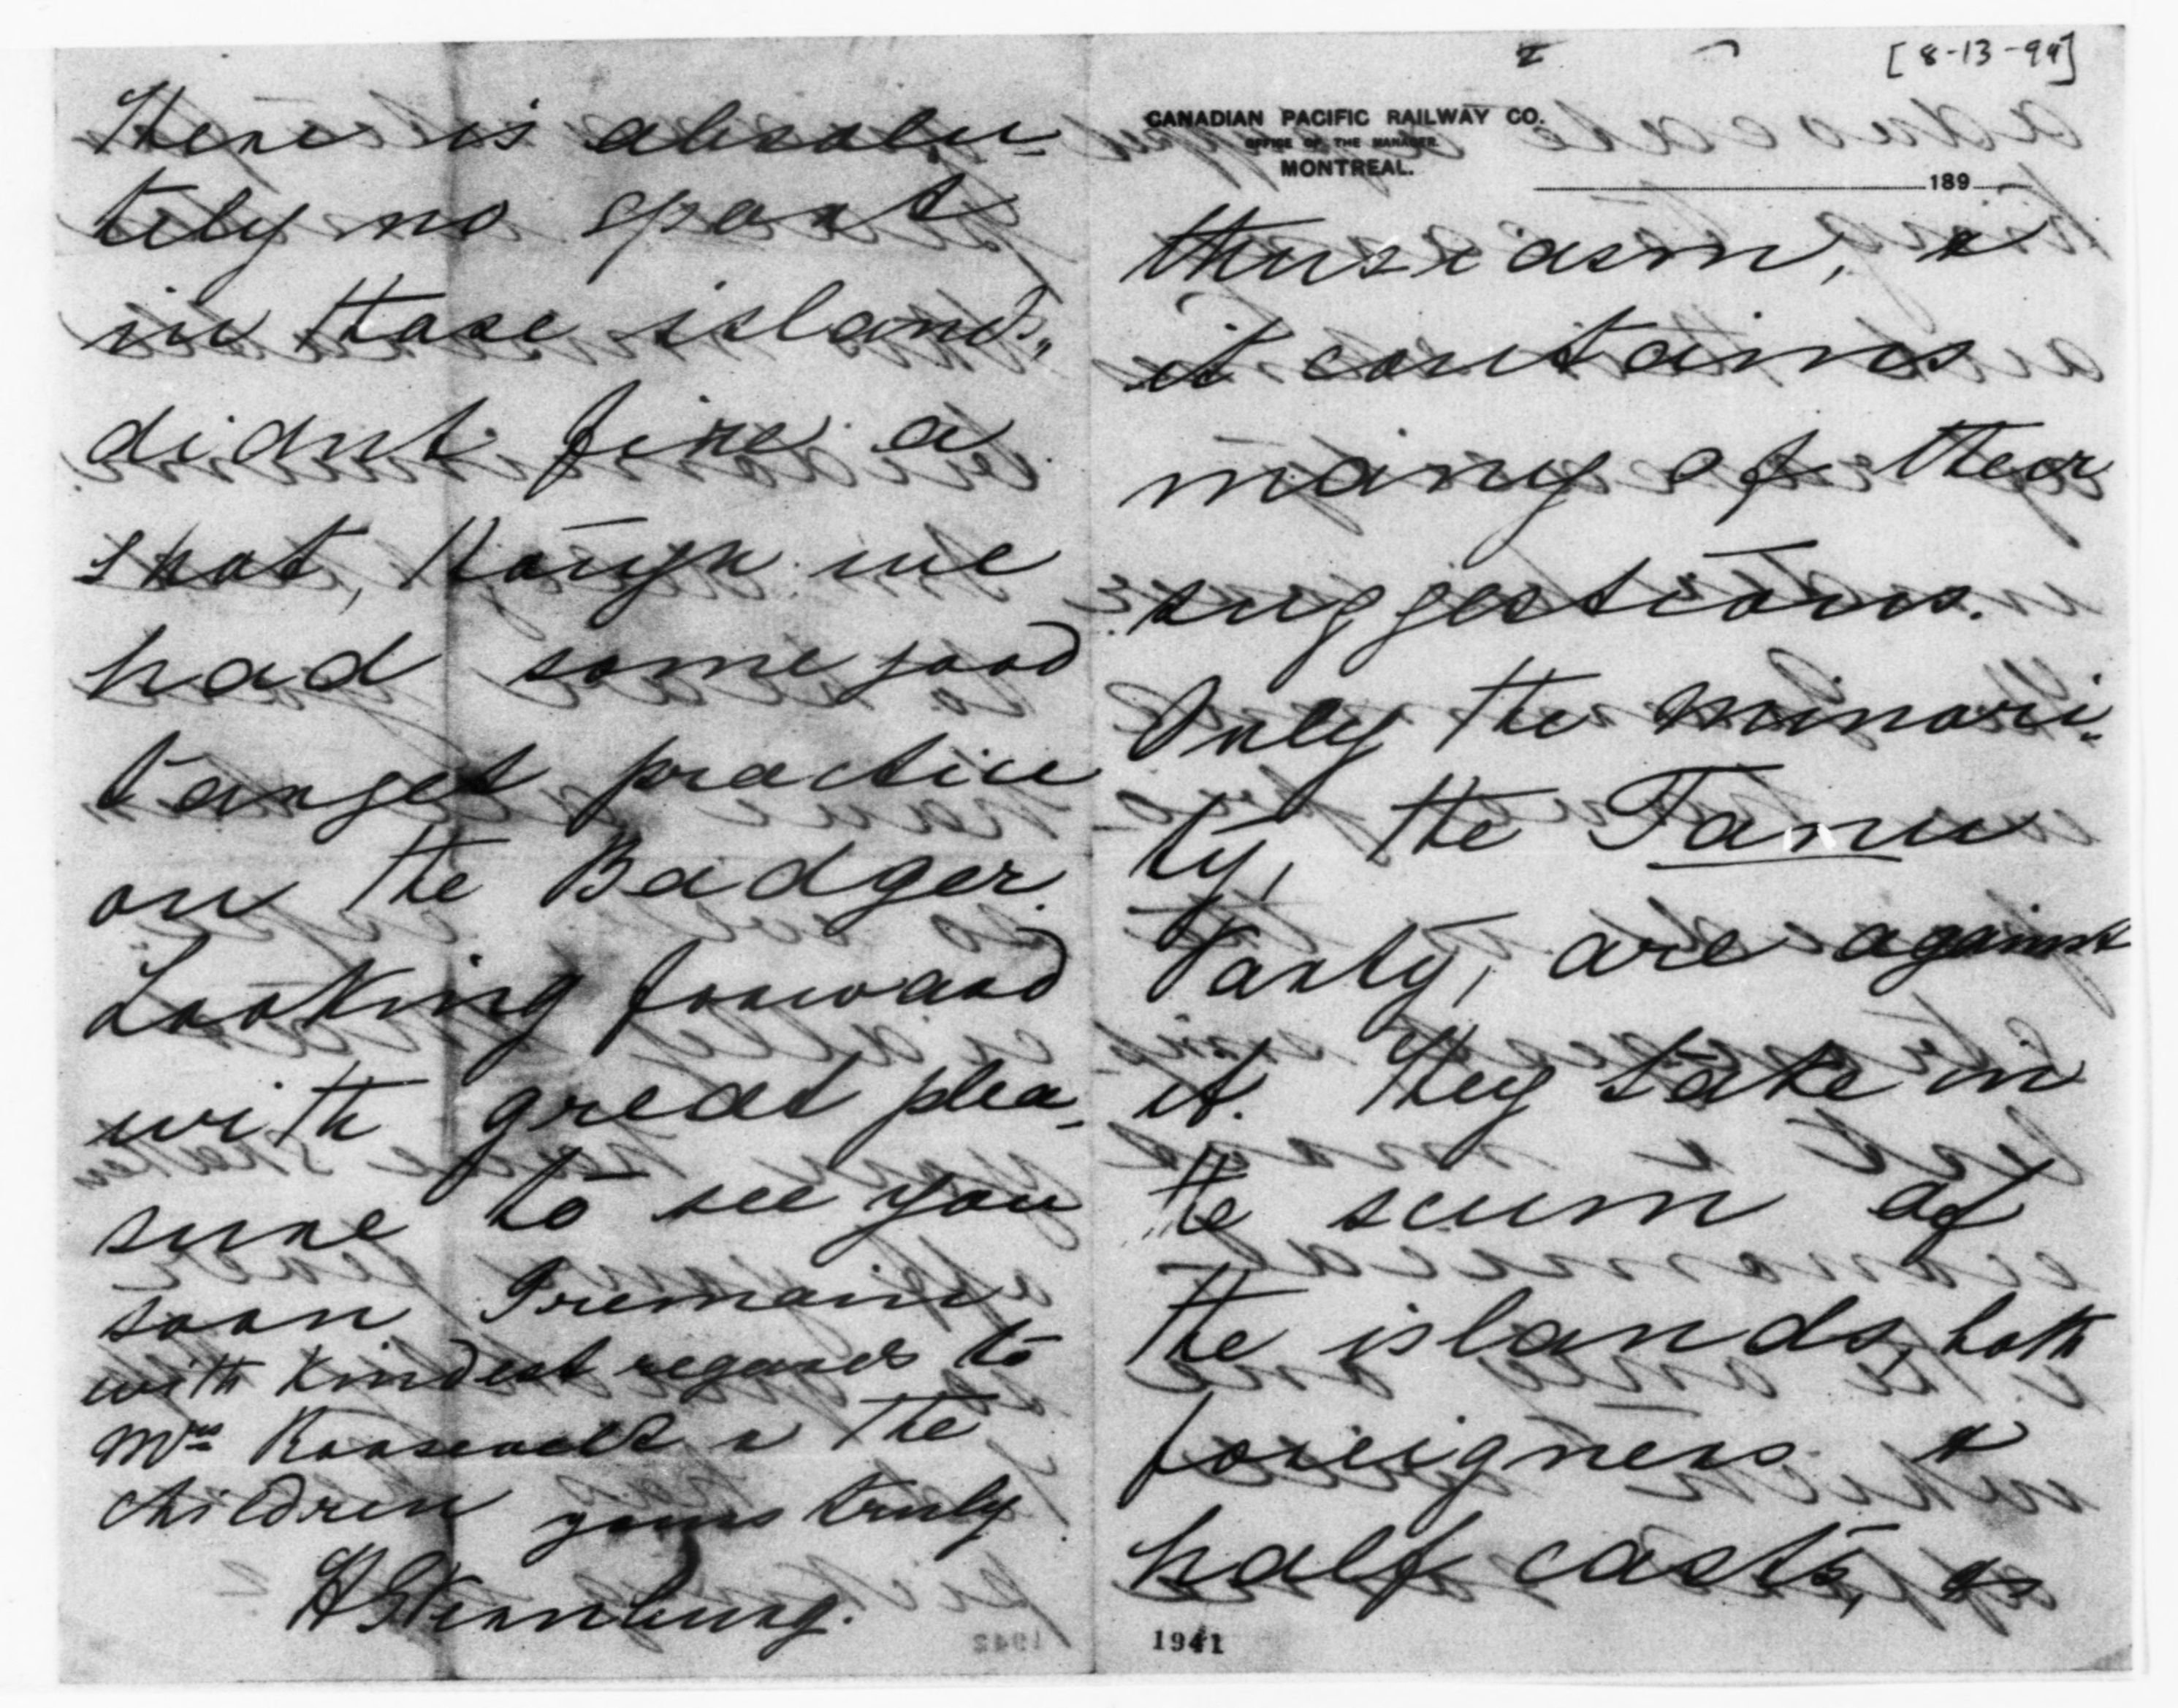 There is absolu-
tely no sport
in those islands,
didnt fire a
shot, though we
had some good
target practice
on the Badger.
Looking forward
with great plea-
sure to see you
soon I remain
with kindest regards to
Mrs Roosevelt & the
children yours truly
H Sternburg.
2
[8-13-99]
CANADIAN PACIFIC RAILWAY CO.
OFFICE OF THE MANAGER
MONTREAL.
189
thusiasm, &
it contains
many of their
suggestions.
Only the minori-
ty, the Tanu
Party, are against
it. They take in
the scum of
the islands, both
foreigners &
half casts, as
1941
1942